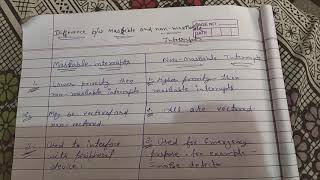 Difference b/w Maskable and non-maskable
Interrupts
PAGE NO
DATE
Maskable interrupts
Non-Maskable Interrupts
1. Lower priority then
non-maskable interrupts
1. Higher priority then
maskable interrupts
2. May be vectored or
non-vectored.
2. All are vectored.
3. Used to interface
with peripheral
device.
3. Used for Emergency
purpose for example -